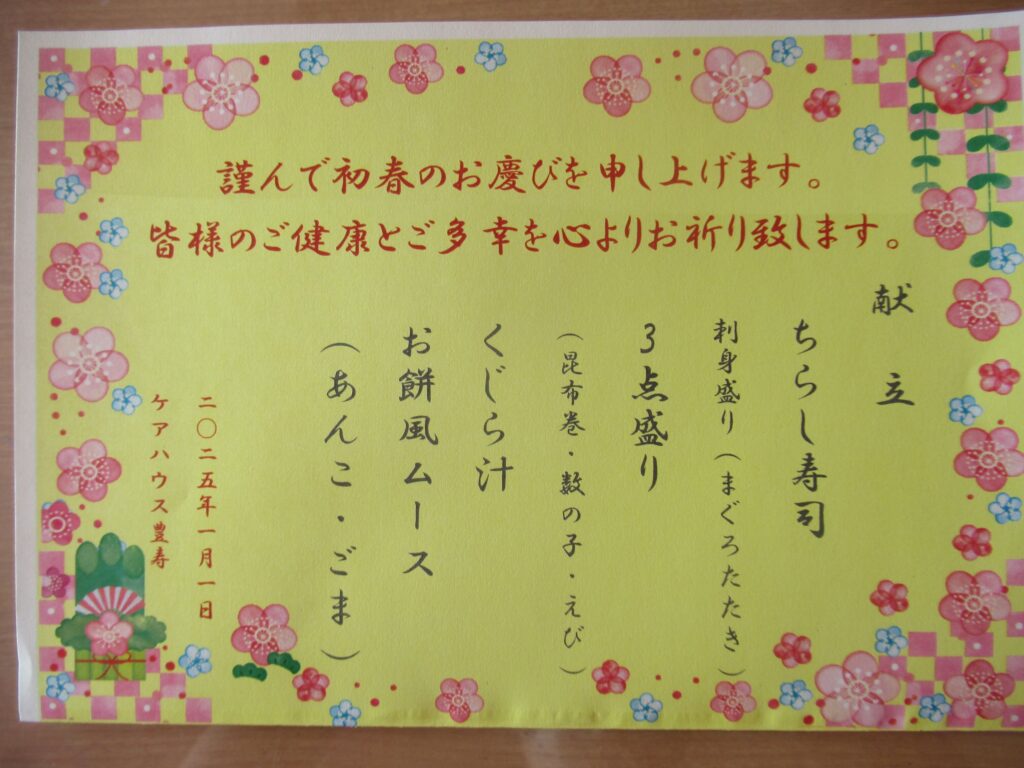 謹んで初春のお慶びを申し上げます。
皆様のご健康とご多幸を心よりお祈り致します。
献立
ちらし寿司
刺身盛り(まぐろたたき)
3点盛り
(昆布巻・数の子・えび)
くじら汁
お餅風ムース
(あんこ・ごま)
二〇二五年一月一日
ケアハウス豊寿